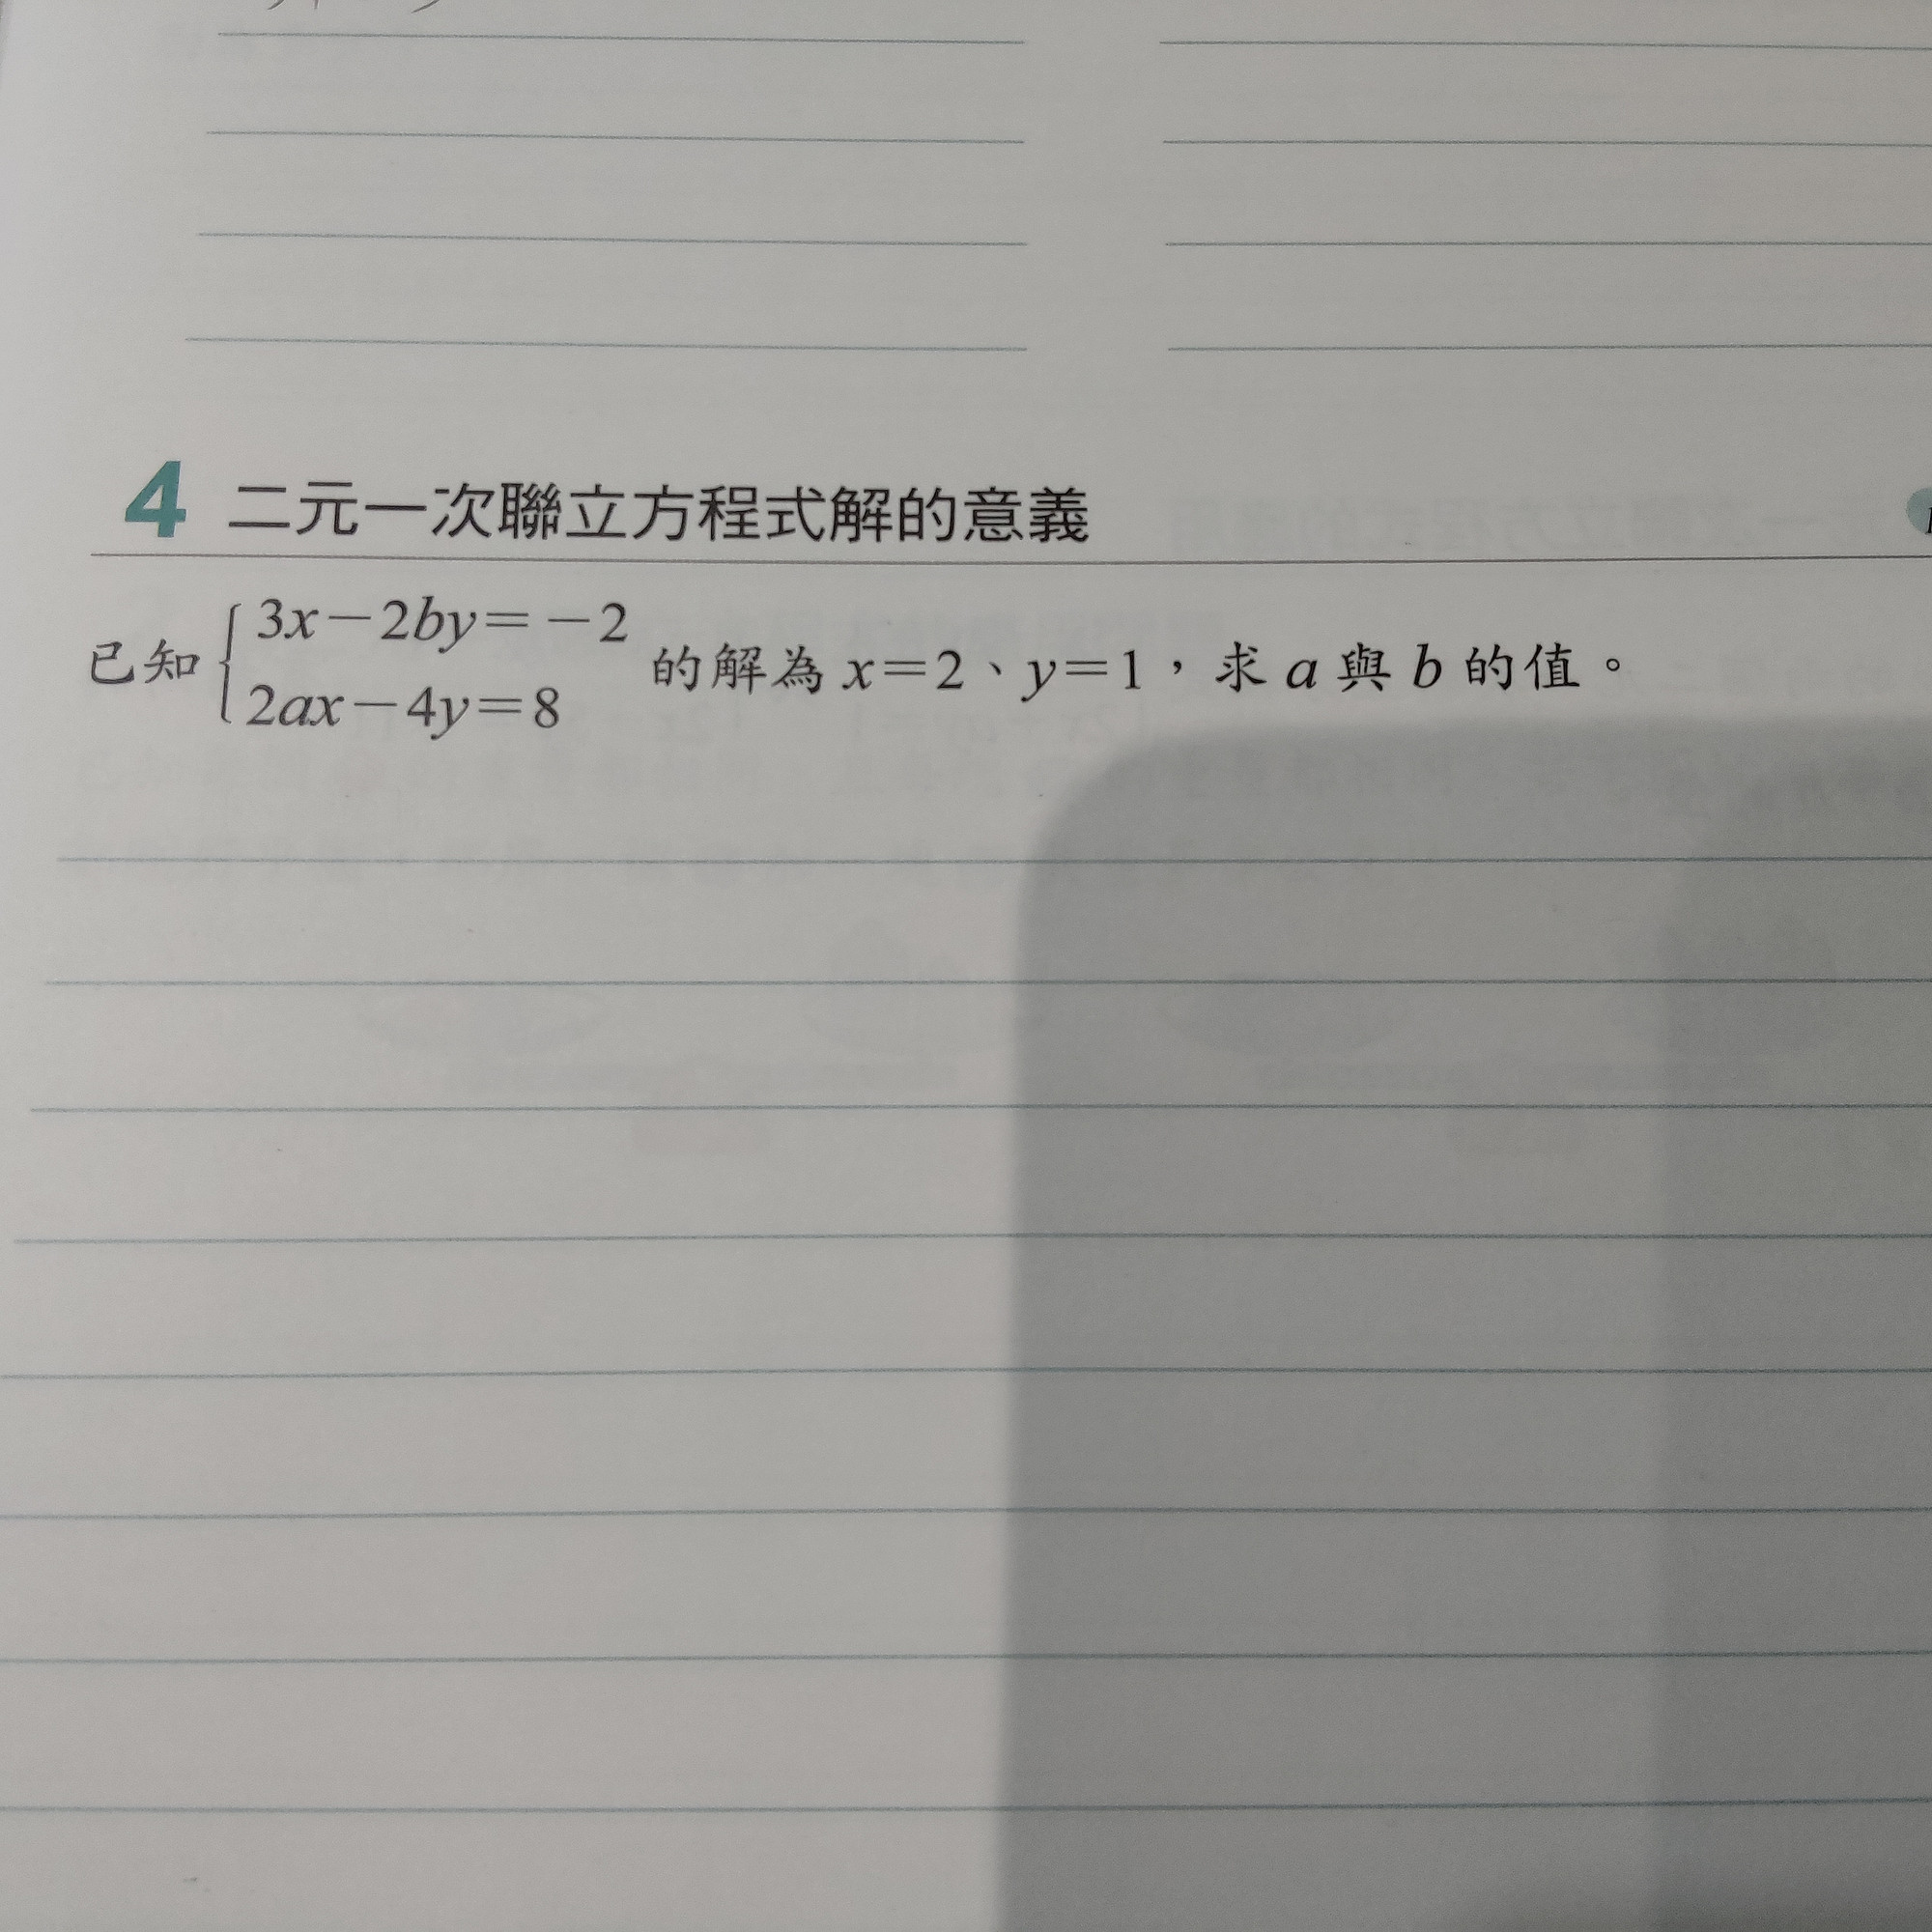 4 二元一次聯立方程式解的意義
已知 { 3x－2by＝－2
2ax－4y＝8 的解為 x＝2、y＝1，求 a 與 b 的值。